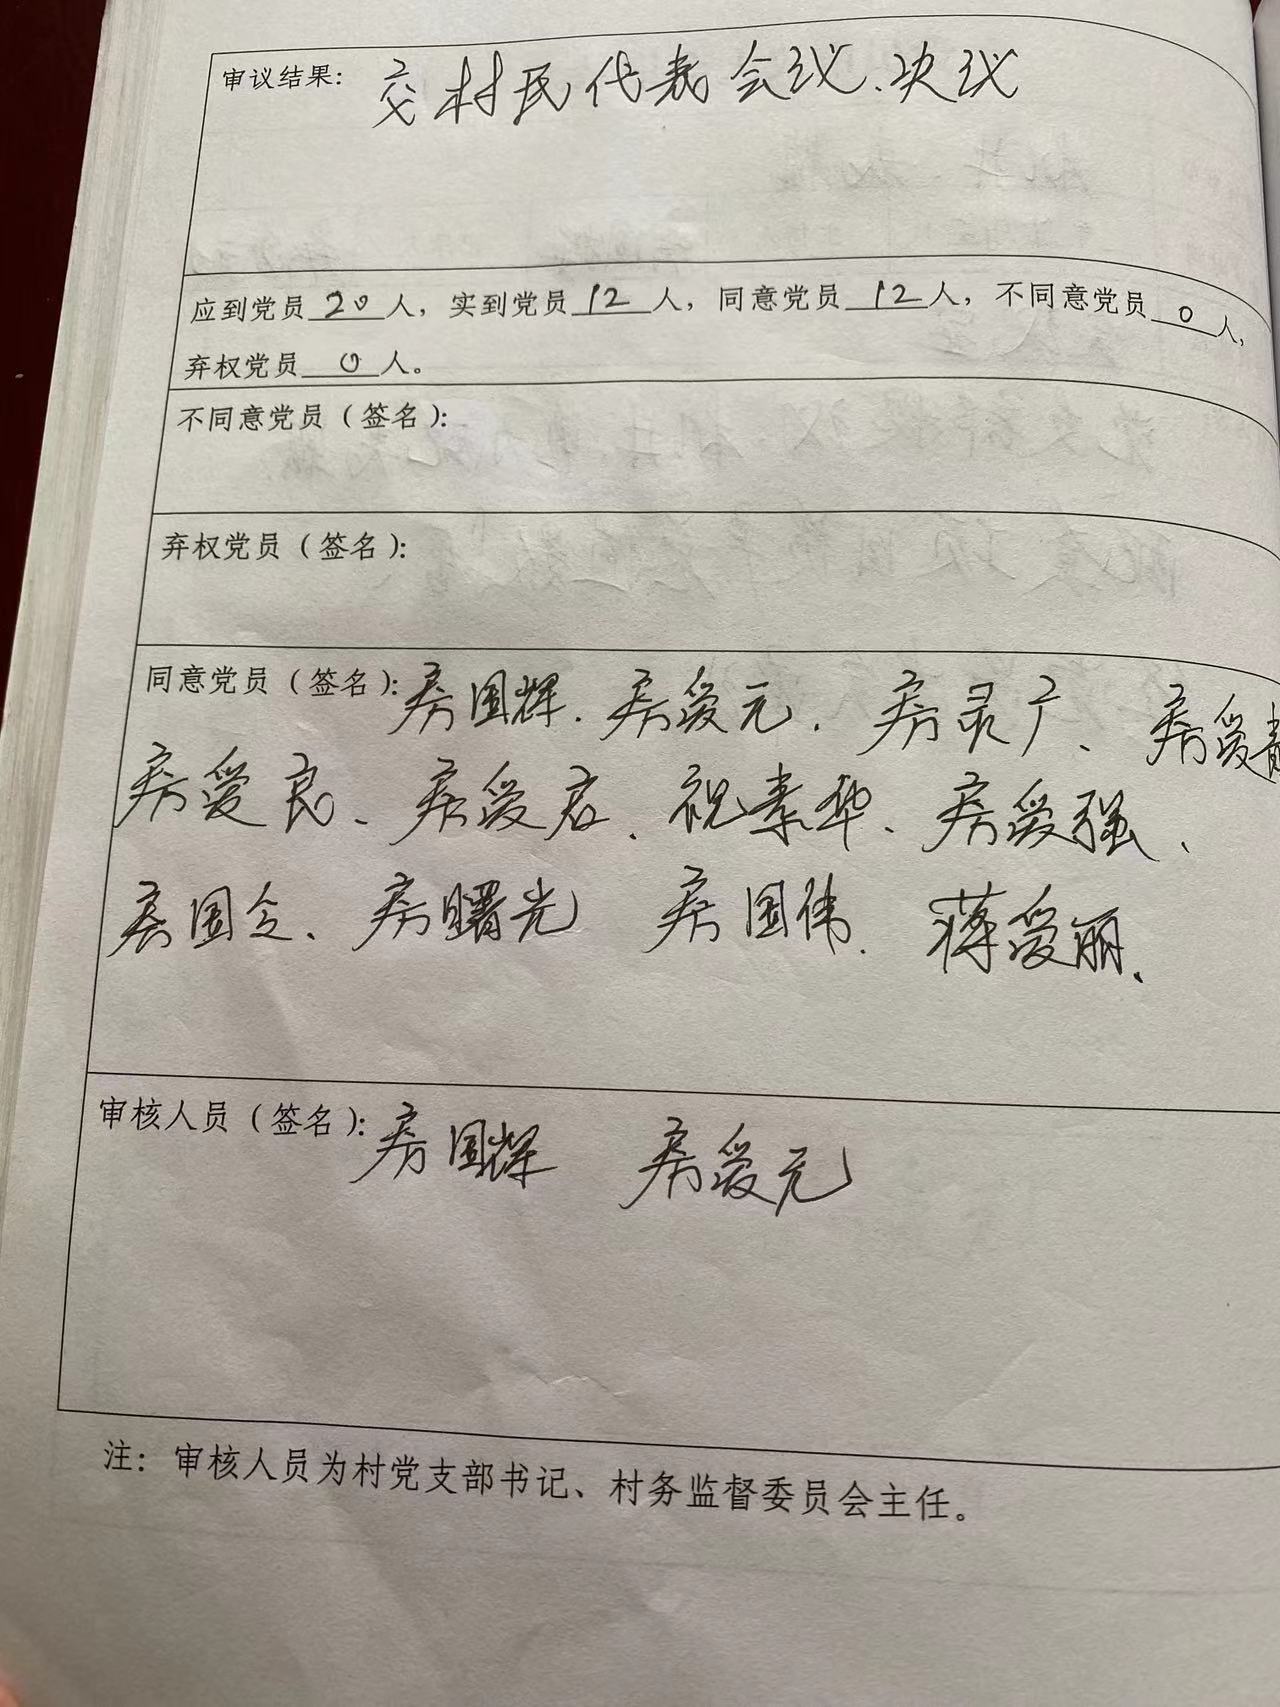 审议结果: 交村民代表会议、决议
应到党员20人，实到党员12人，同意党员12人，不同意党员0人，
弃权党员0人。
不同意党员（签名）:
弃权党员（签名）:
同意党员（签名）: 房国辉、房爱元、房录广、房爱
房爱良、房爱君、祝素华、房爱强、
房国令、房曙光 房国伟、蒋爱丽、
审核人员（签名）: 房国辉 房爱元
注：审核人员为村党支部书记、村务监督委员会主任。